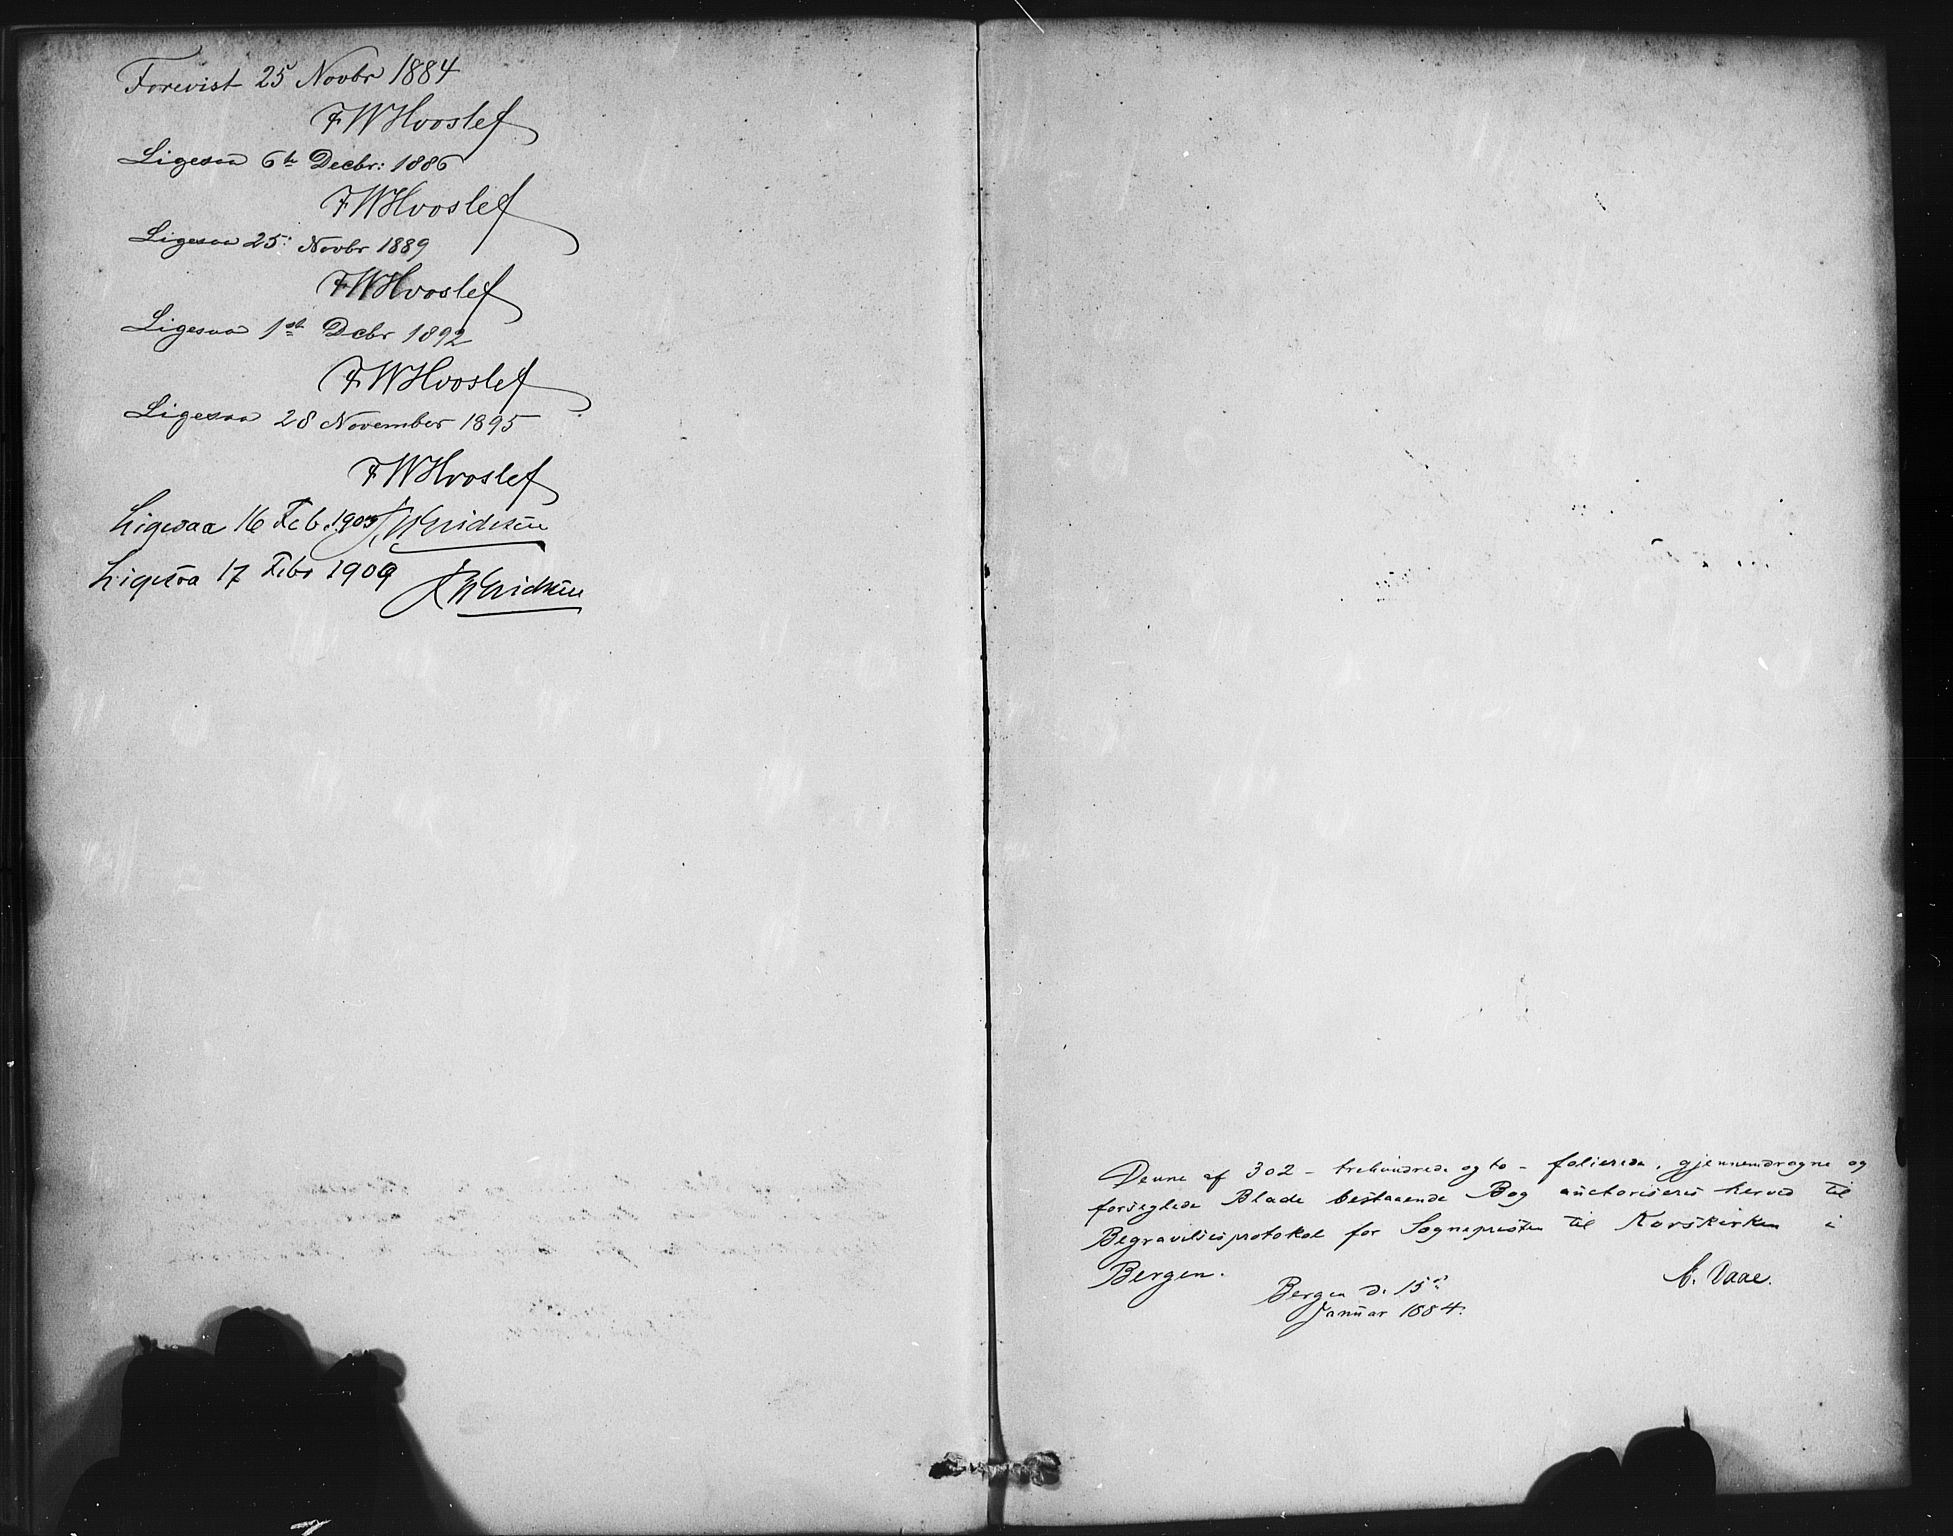 Forevist 25 Novbr 1884
FWHvoslef
Ligesaa 6te Decbr: 1886
FWHvoslef
Ligesaa 25: Novbr 1889
FWHvoslef
Ligesaa 1ste Dcbr 1892
FWHvoslef
Ligesaa 28 November 1895
FWHvoslef
Ligesaa 16 Feb.
Ligesaa 17 Febr 1909
Denne af 302 - trehundrede og to - folierede, gjennemdragne og
forseglede Blade bestaaende Bog auctoriseres herved til
Begravelsesprotokol for Sognepresten til Korskirken i
Bergen.
Bergen d. 15de
Januar 1884.
Vaae.